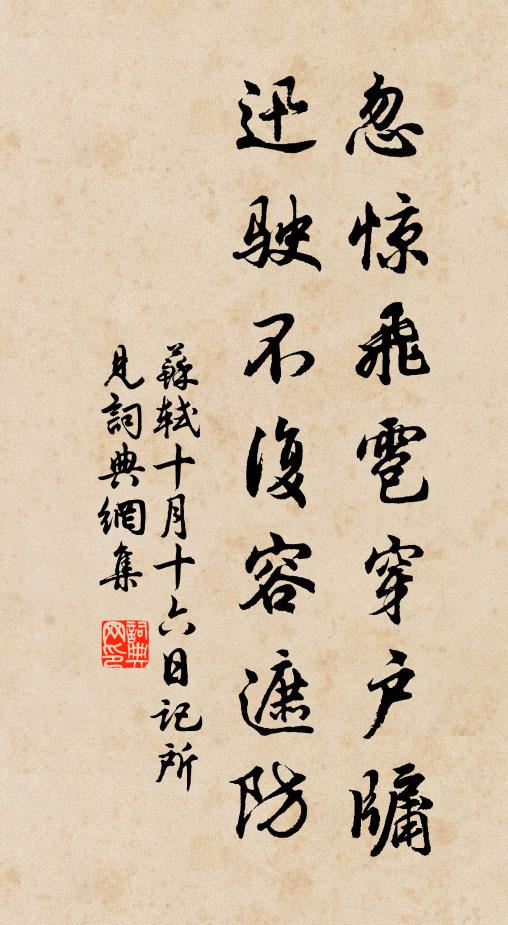 忽惊飛雹穿户牖
迅駛不復容遮防
蘇軾十月十六日記所
見詞典網集
詞典
网印